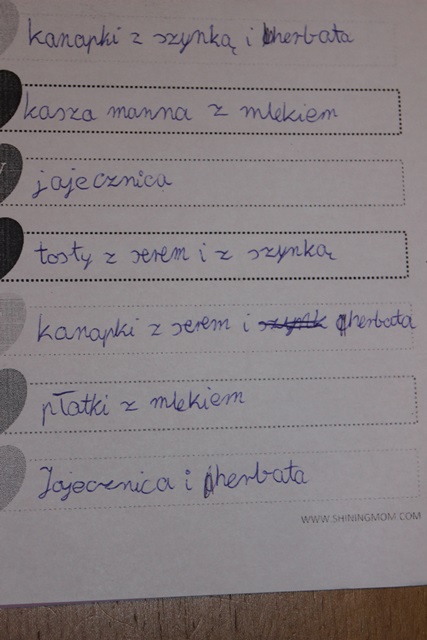 kanapki z szynką i herbata
kasza manna z mlekiem
jajecznica
tosty z serem i z szynką
kanapki z serem i szynk herbata
płatki z mlekiem
Jajecznica i herbata
WWW.SHININGMOM.COM